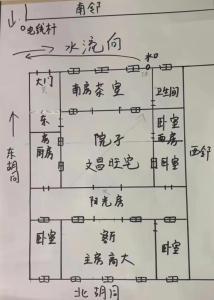 南邻
电线杆
水流向
水口
大门
南房茶室
卫生间
东
房
厨房
院子
文昌旺宅
卧室
西房
卧室
东胡同
西邻
阳光房
卧室
主房高大
卧室
北胡同